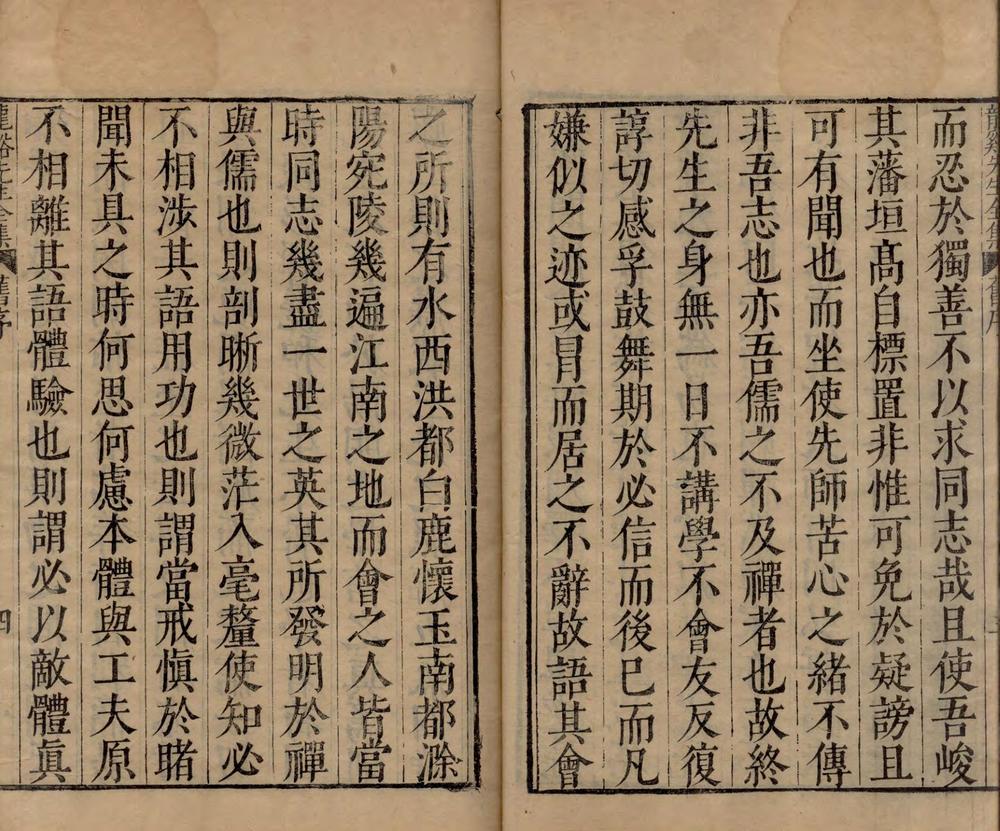 龍谿先生全集 舊序
而忍於獨善不以求同志哉且使吾峻
其藩垣髙自標置非惟可免於疑謗且
可有聞也而坐使先師苦心之緒不傳
非吾志也亦吾儒之不及禪者也故終
先生之身無一日不講學不會友反復
諄切感孚鼓舞期於必信而後巳而凡
嫌似之迹或冐而居之不辭故語其會
之所則有水西洪都白鹿懷玉南都滁
陽宛陵幾遍江南之地而會之人皆當
時同志幾盡一世之英其所發明於禪
與儒也則剖晣幾微茫入毫釐使知必
不相涉其語用功也則謂當戒慎於睹
聞未具之時何思何慮本體與工夫原
不相離其語體驗也則謂必以敵體眞
龍谿先生全集 舊序 四